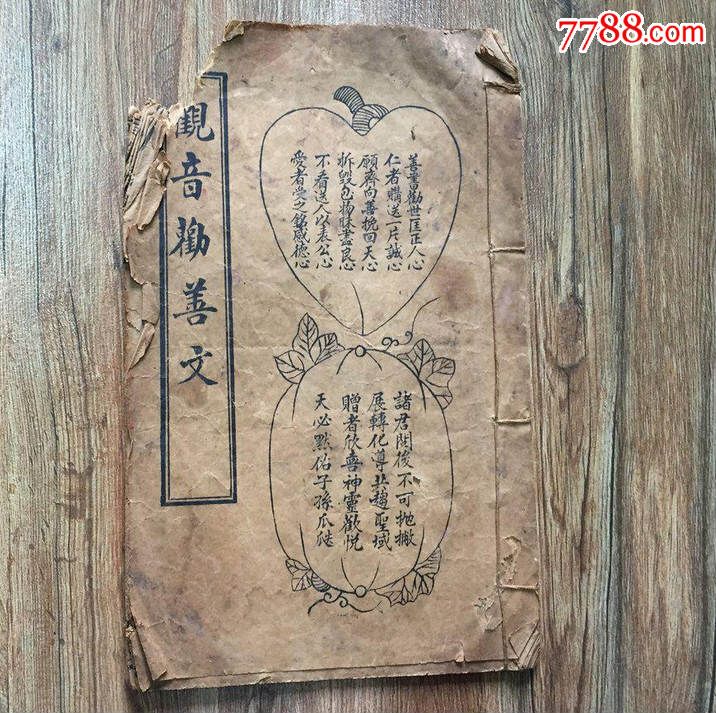 7788.com
觀音勸善文
善書勸世匡正人心
仁者購送一片誠心
願齊向善挽回天心
拆毀包物昧盡良心
不看送人以表公心
愛者受之銘感德心
諸君閱後不可拋撇
展轉化導共趨聖域
贈者欣喜神靈歡悅
天必默佑子孫瓜瓞